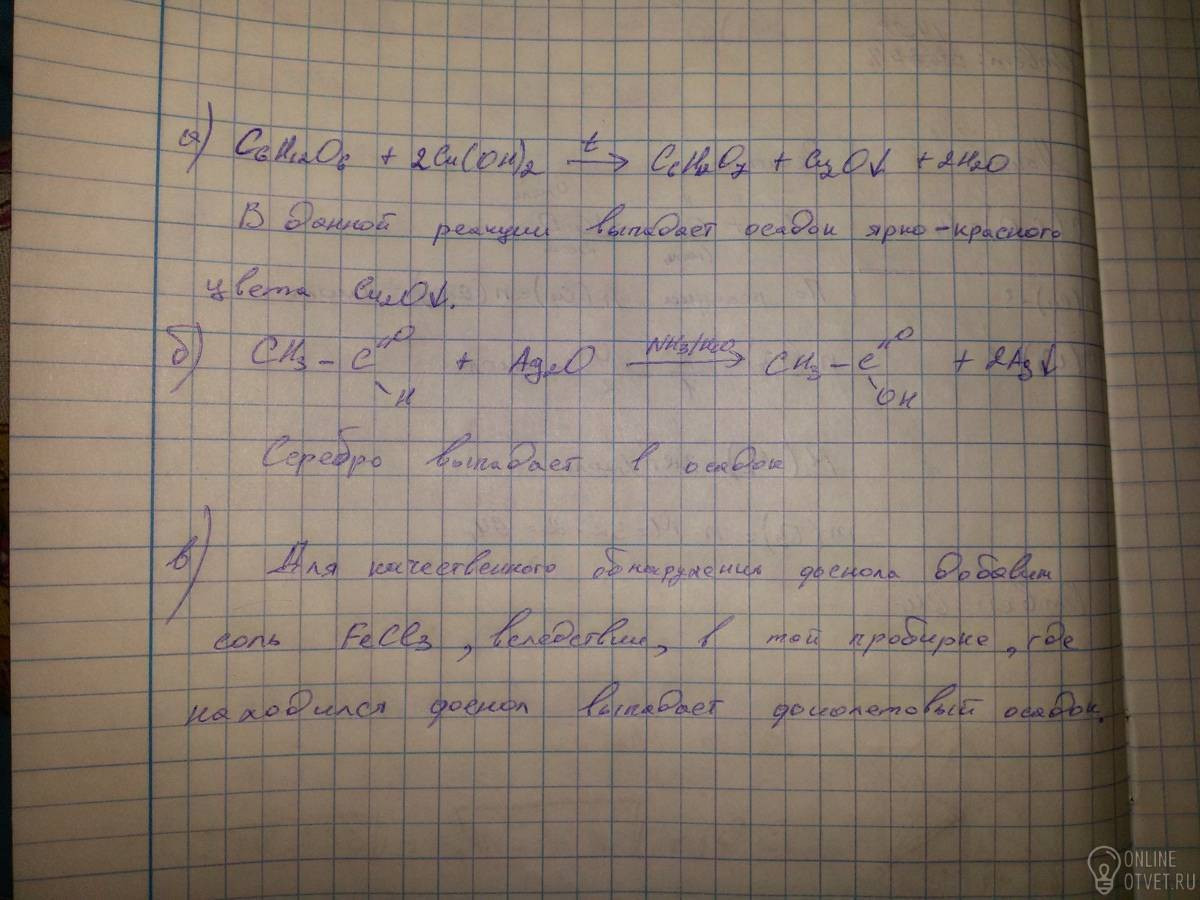 а) C6H12O6 + 2Cu(OH)2 t→ C6H12O7 + Cu2O↓ + 2H2O
В данной реакции выпадает осадок ярко-красного
цвета Cu2O↓.
б) CH3 – C =O H + Ag2O NH3/H2O→ CH3 – C =O OH + 2Ag↓
Серебро выпадает в осадок
в) Для качественного обнаружения фенола добавим
соль FeCl3, вследствии, в той пробирке, где
находился фенол выпадает фиолетовый осадок.
ONLINE
OTVET.RU